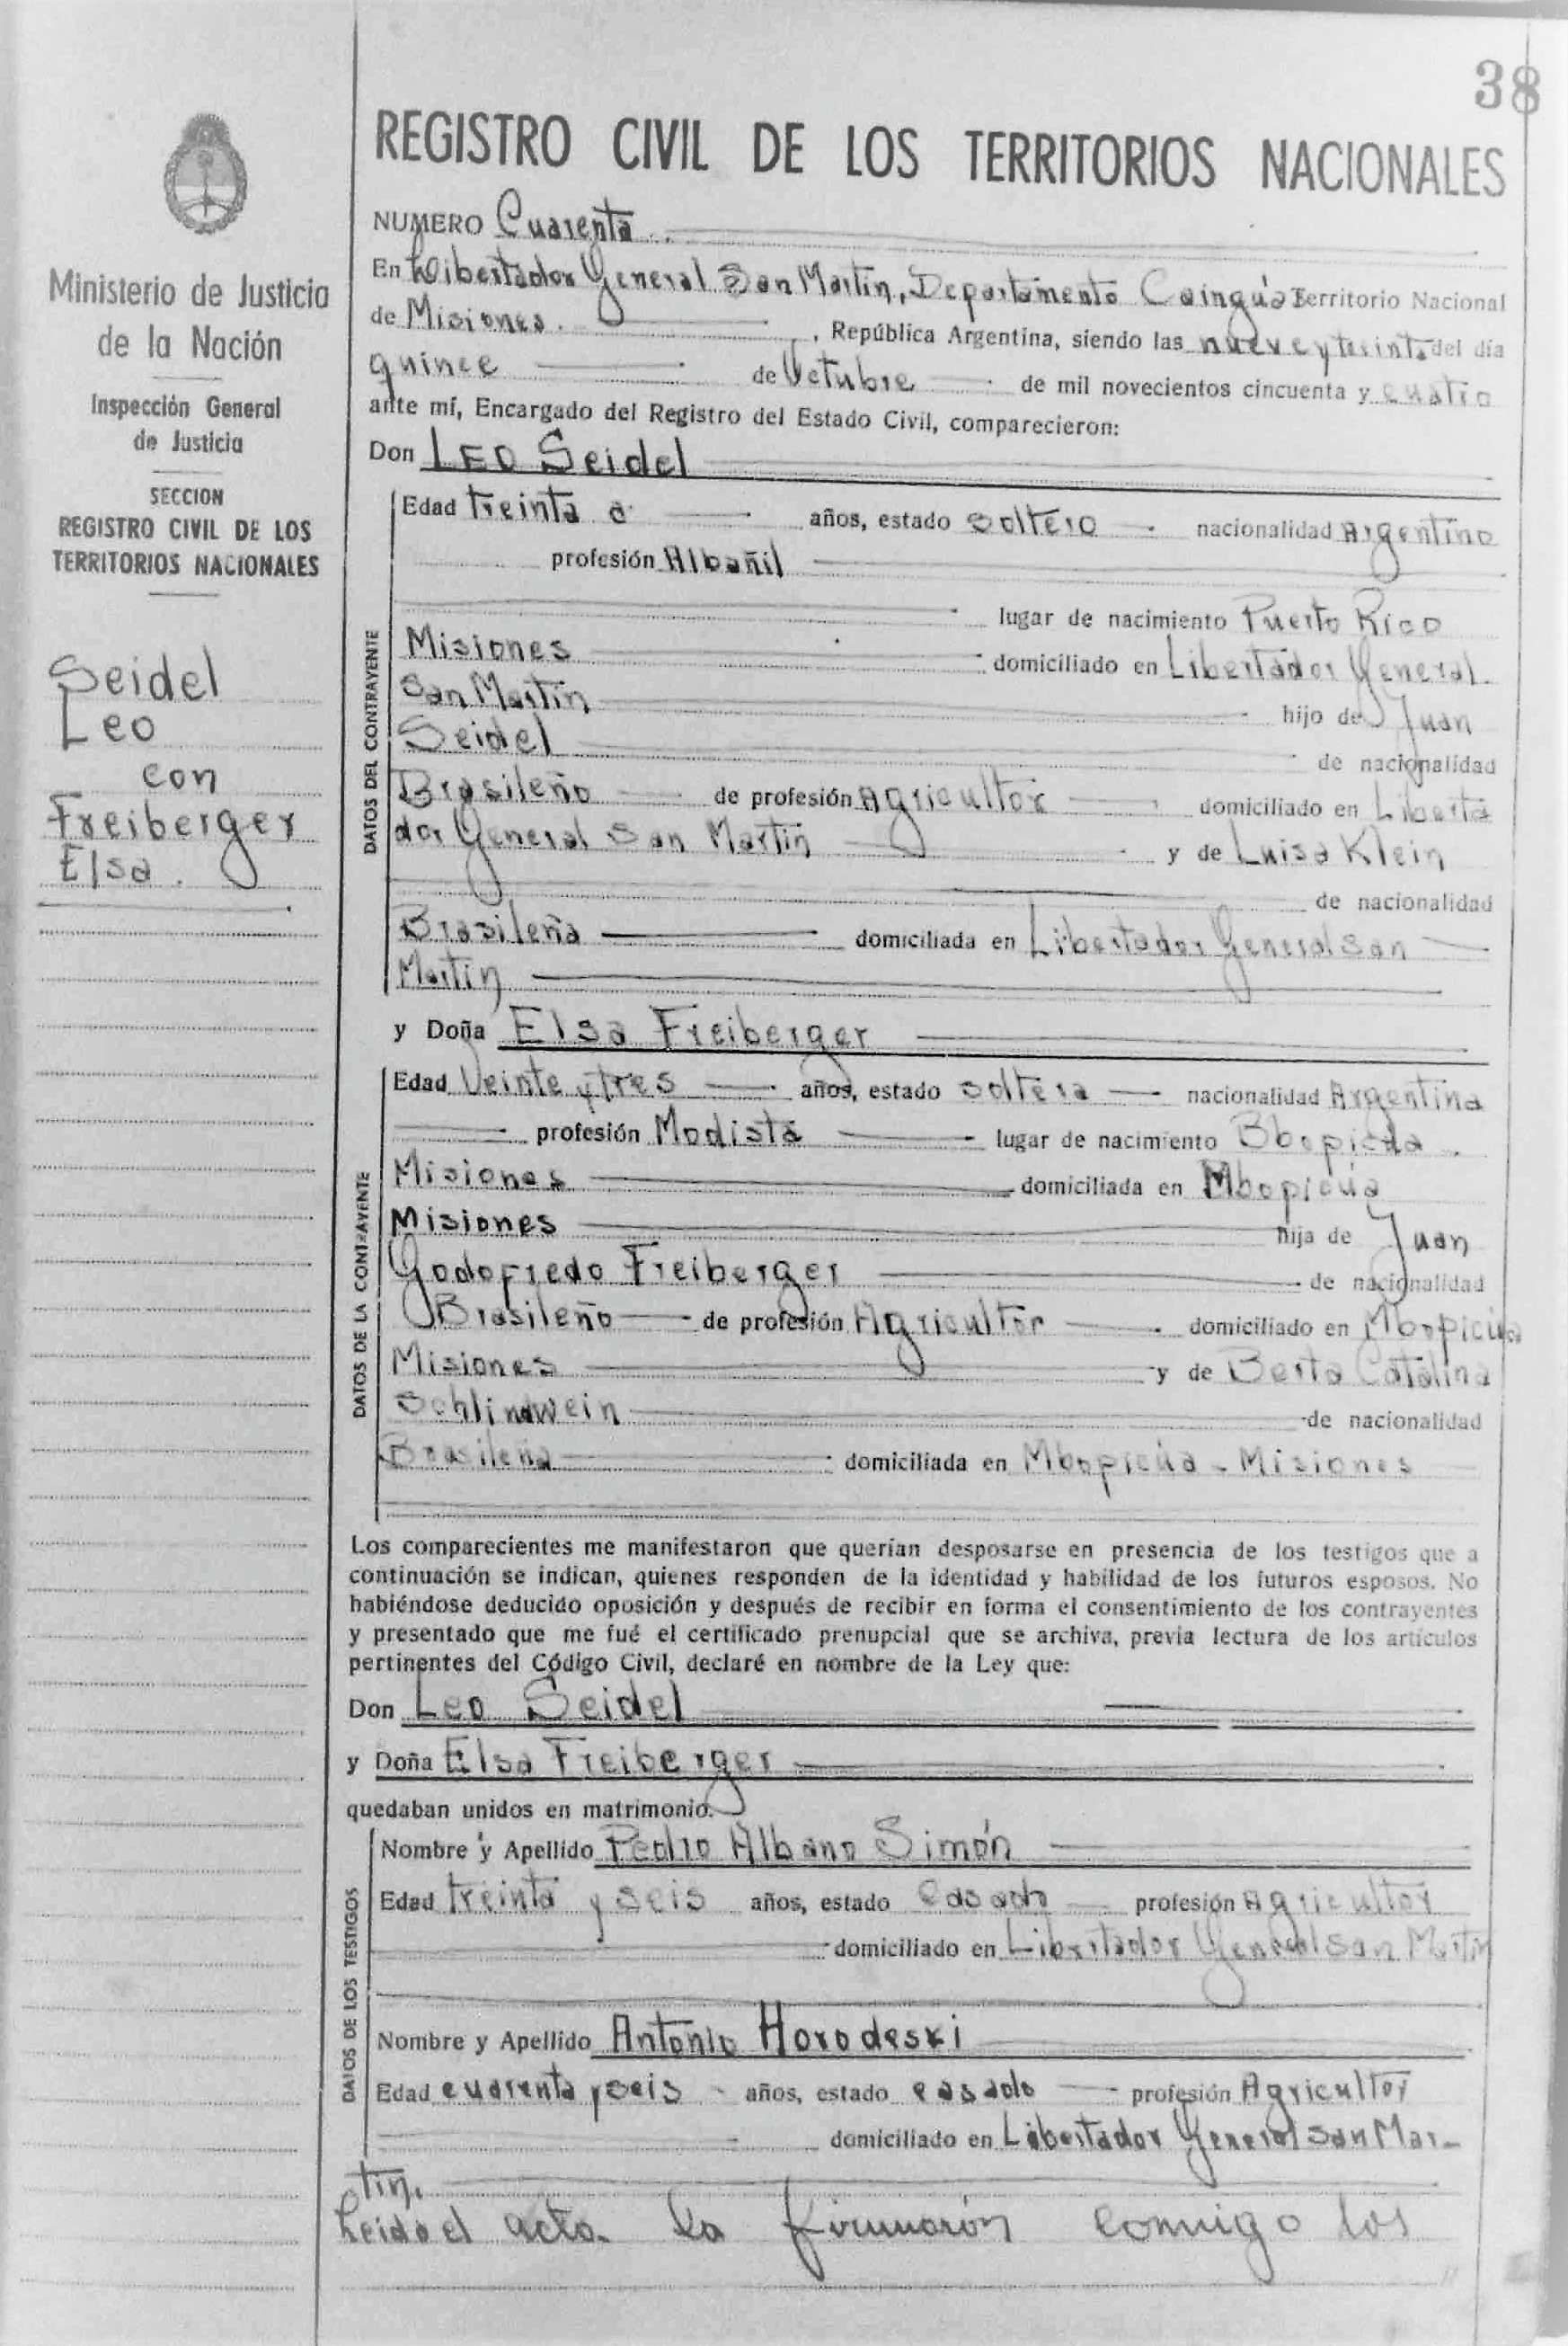 38
REGISTRO CIVIL DE LOS TERRITORIOS NACIONALES
Ministerio de Justicia
de la Nación
Inspección General
de Justicia
SECCION
REGISTRO CIVIL DE LOS
TERRITORIOS NACIONALES
Seidel
Leo
con
Freiberger
Elsa.
NUMERO Cuarenta
En Libertador General San Martin, Departamento Cainguás Territorio Nacional
de Misiones. , República Argentina, siendo las nueve y treinta del día
quince de Octubre de mil novecientos cincuenta y cuatro
ante mí, Encargado del Registro del Estado Civil, comparecieron:
Don LEO Seidel
DATOS DEL CONTRAYENTE
Edad treinta años, estado soltero nacionalidad Argentino
profesión Albañil
lugar de nacimiento Puerto Rico
Misiones domiciliado en Libertador General
San Martin hijo de Juan
Seidel de nacionalidad
Brasileño de profesión Agricultor domiciliado en Liberta
dor General San Martin y de Luisa Klein
de nacionalidad
Brasileña domiciliada en Libertador General San
Martin
y Doña Elsa Freiberger
DATOS DE LA CONTRAYENTE
Edad Veinte y tres años, estado soltera nacionalidad Argentina
profesión Modista lugar de nacimiento
Misiones domiciliada en Mbopicuá
Misiones hija de Juan
Godofredo Freiberger de nacionalidad
Brasileño de profesión Agricultor domiciliado en Mbopicua
Misiones y de Berta Catalina
Schlindwein de nacionalidad
Brasileña domiciliada en Mbopicuá - Misiones
Los comparecientes me manifestaron que querían desposarse en presencia de los testigos que a
continuación se indican, quienes responden de la identidad y habilidad de los futuros esposos. No
habiéndose deducido oposición y después de recibir en forma el consentimiento de los contrayentes
y presentado que me fué el certificado prenupcial que se archiva, previa lectura de los artículos
pertinentes del Código Civil, declaré en nombre de la Ley que:
Don Leo Seidel
y Doña Elsa Freiberger
quedaban unidos en matrimonio.
DATOS DE LOS TESTIGOS
Nombre y Apellido Pedro Albano Simón
Edad treinta y seis años, estado casado profesión Agricultor
domiciliado en Libertador General San Martin
Nombre y Apellido Antonio Horodeski
Edad cuarenta y seis años, estado casado profesión Agricultor
domiciliado en Libertador General San Mar-
tin.
Leida el acta la firmarón conmigo los